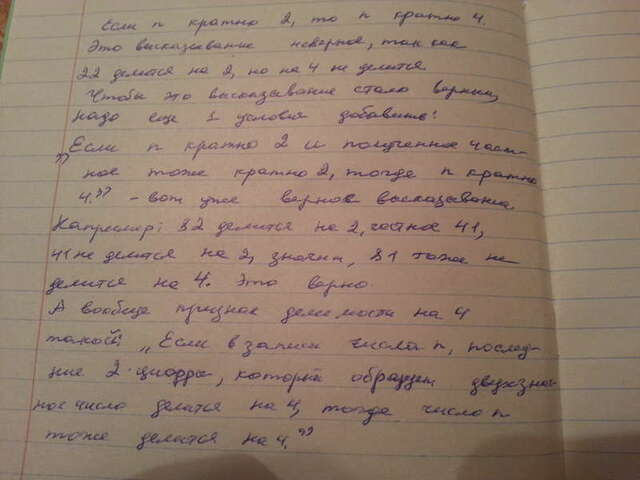 Если n кратно 2, то n кратно 4.
Это высказывание неверное, так как
22 делится на 2, но на 4 не делится
Чтобы это высказывание стало верным,
надо еще 1 условие добавить:
„Если n кратно 2 и полученное част-
ное тоже кратно 2, тогда n кратно
4." - вот уже верное высказывание.
Например: 82 делится на 2, частное 41,
41 не делится на 2, значит, 81 тоже не
делится на 4. Это верно.
А вообще признак делимости на 4
такой: „Если в записи числа n, послед-
ние 2 цифры, которые образуют двузнач-
ное число делится на 4, тогда число n
тоже делится на 4."